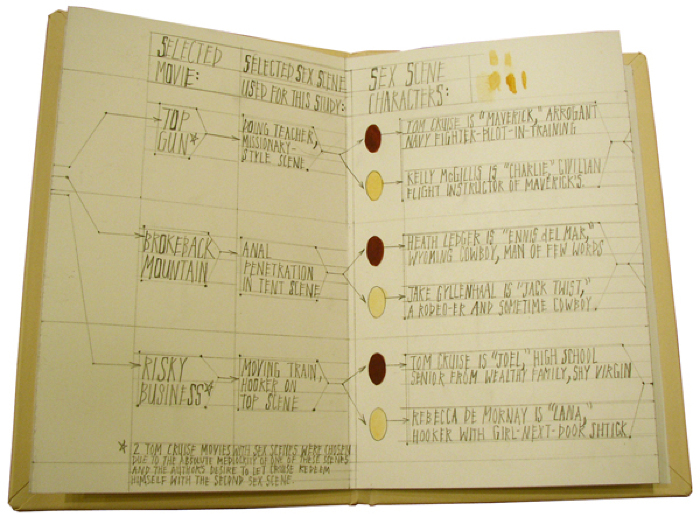 SELECTED
MOVIE:
SELECTED SEX SCENE
USED FOR THIS STUDY:
SEX SCENE
CHARACTERS:
TOP
GUN*
DOING TEACHER,
MISSIONARY-
STYLE SCENE.
TOM CRUISE IS "MAVERICK," ARROGANT
NAVY FIGHTER-PILOT-IN-TRAINING
KELLY McGILLIS IS "CHARLIE," CIVILIAN
FLIGHT INSTRUCTOR OF MAVERICK'S.
BROKEBACK
MOUNTAIN
ANAL
PENETRATION
IN TENT SCENE
HEATH LEDGER IS "ENNIS del MAR,"
WYOMING COWBOY, MAN OF FEW WORDS
JAKE GYLLENHAAL IS "JACK TWIST,"
A RODEO-ER AND SOMETIME COWBOY.
RISKY
BUSINESS*
MOVING TRAIN,
HOOKER ON
TOP SCENE
TOM CRUISE IS "JOEL," HIGH SCHOOL
SENIOR FROM WEALTHY FAMILY, SHY VIRGIN
REBECCA DE MORNAY IS "LANA,"
HOOKER WITH GIRL-NEXT-DOOR SHTICK.
* 2 TOM CRUISE MOVIES WITH SEX SCENES WERE CHOSEN
DUE TO THE ABSOLUTE MEDIOCRITY OF ONE OF THESE SCENES
AND THE AUTHORS DESIRE TO LET CRUISE REDEEM
HIMSELF WITH THE SECOND SEX SCENE.